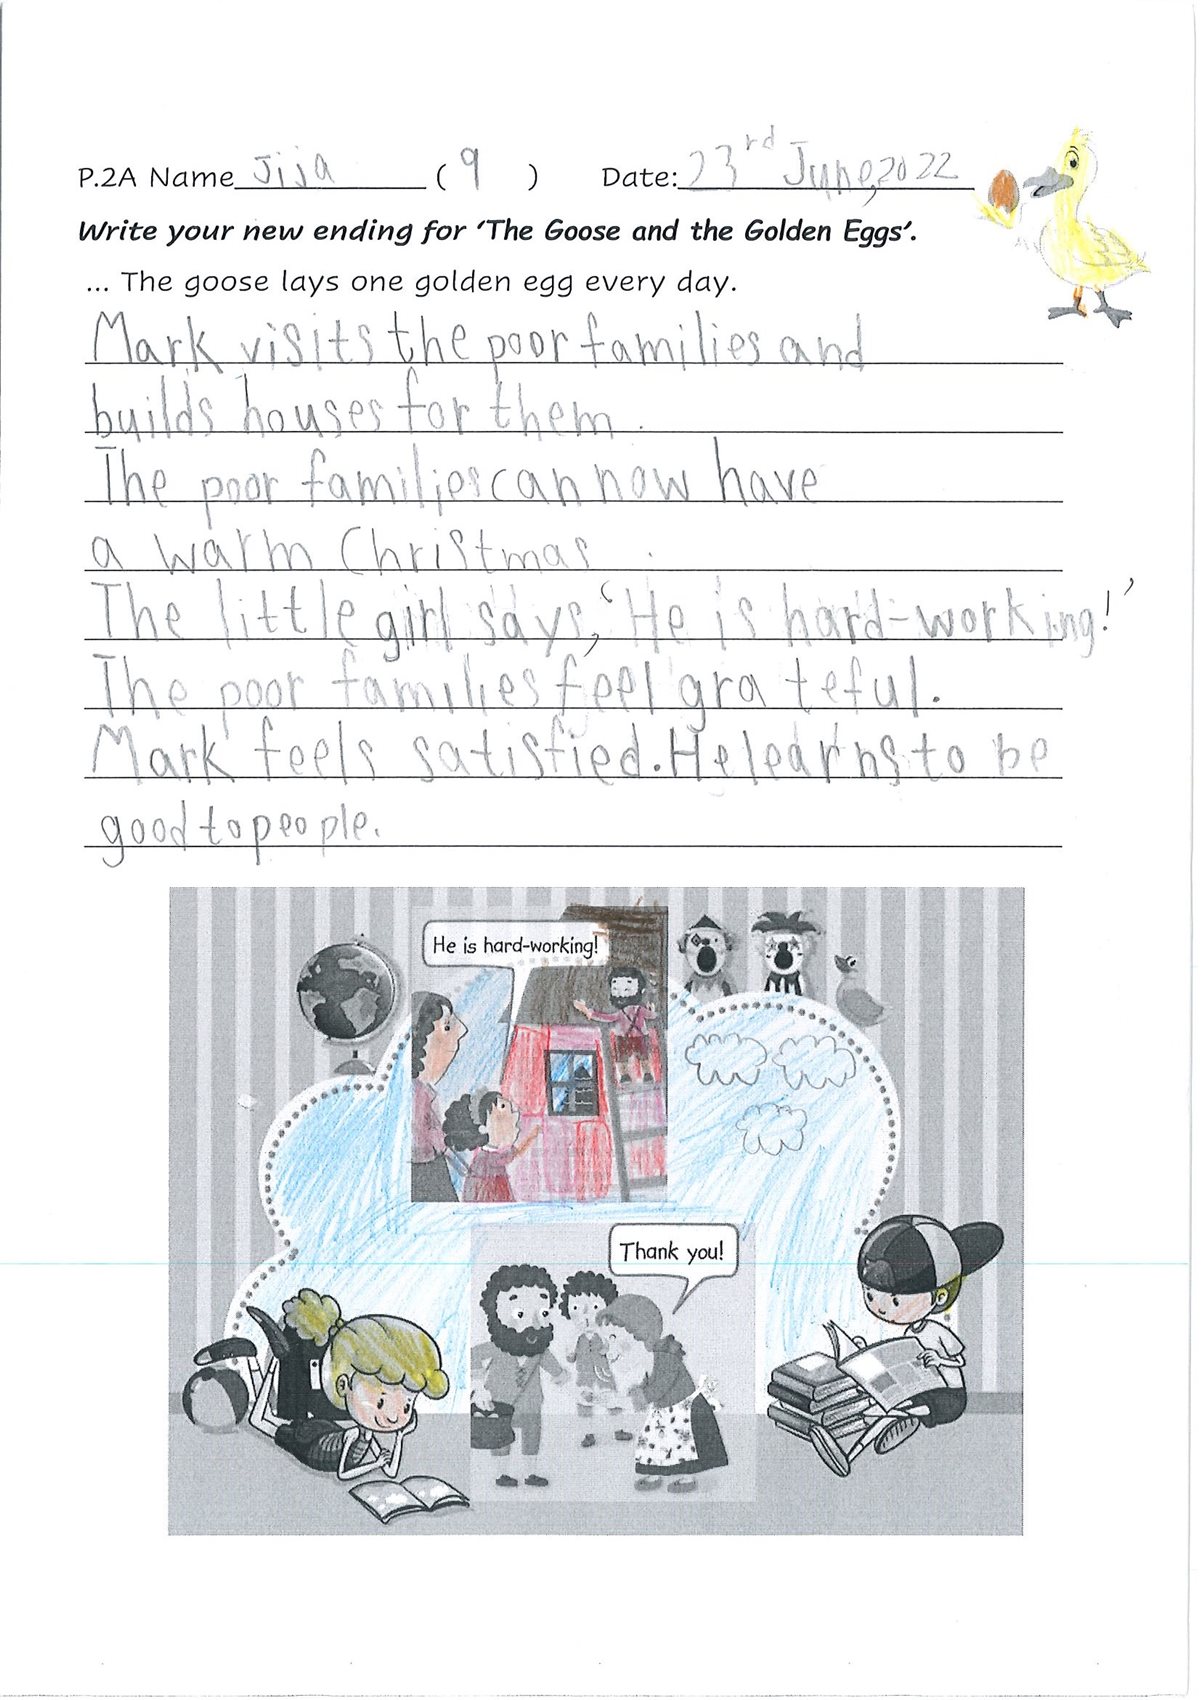 P.2A Name Jija ( 9 ) Date: 23rd June, 2022
Write your new ending for ‘The Goose and the Golden Eggs’.
... The goose lays one golden egg every day.
Mark visits the poor families and
builds houses for them.
The poor families can now have
a warm Christmas.
The little girl says, ‘He is hard-working!’
The poor families feel grateful.
Mark feels satisfied. He learns to be
good to people.
He is hard-working!
Thank you!